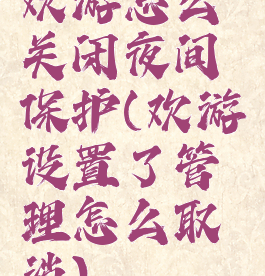 欢游怎么
关闭夜间
保护(欢游
设置了管
理怎么取
消)